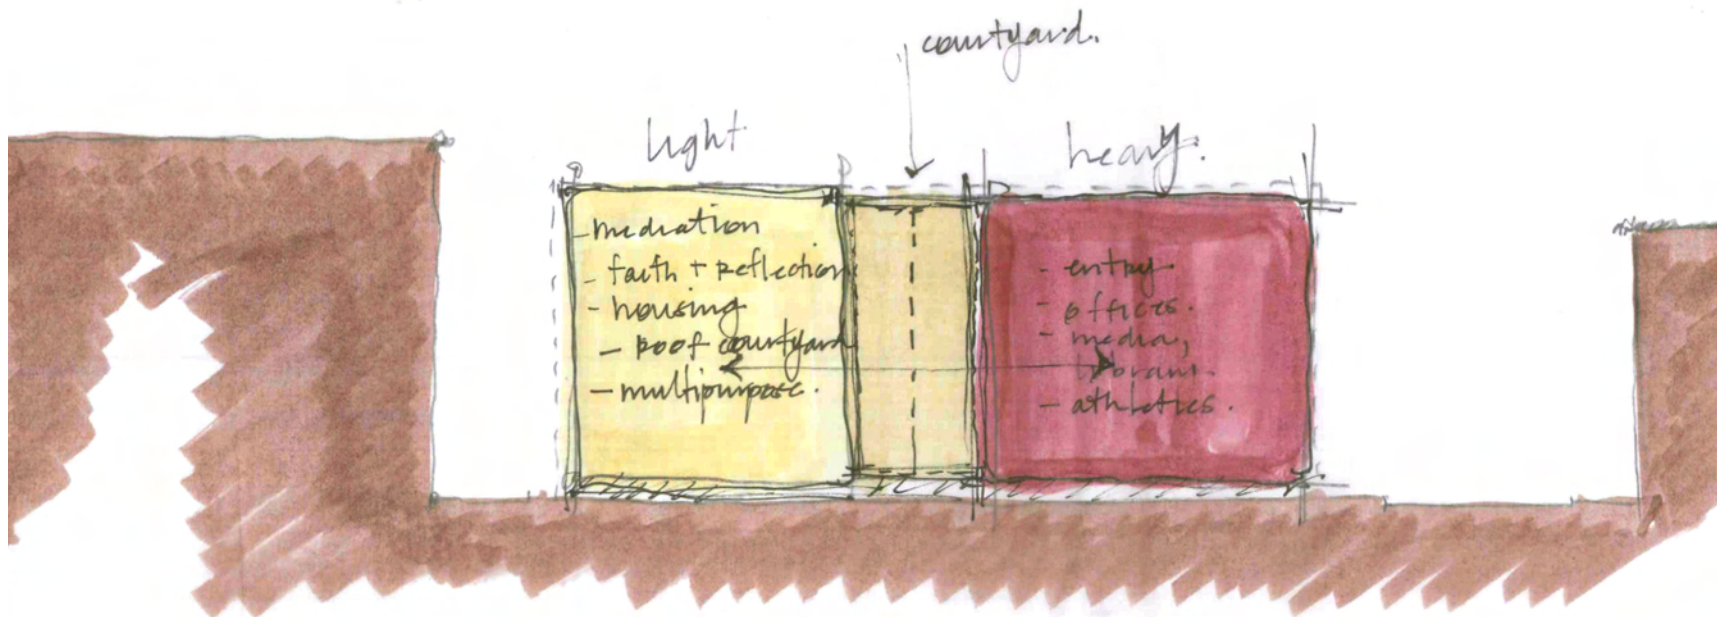 courtyard.
light
heavy.
- mediation
- faith + reflection
- housing
- roof courtyard
- multipurpose.
- entry
- offices.
- media,
library
- athletics.